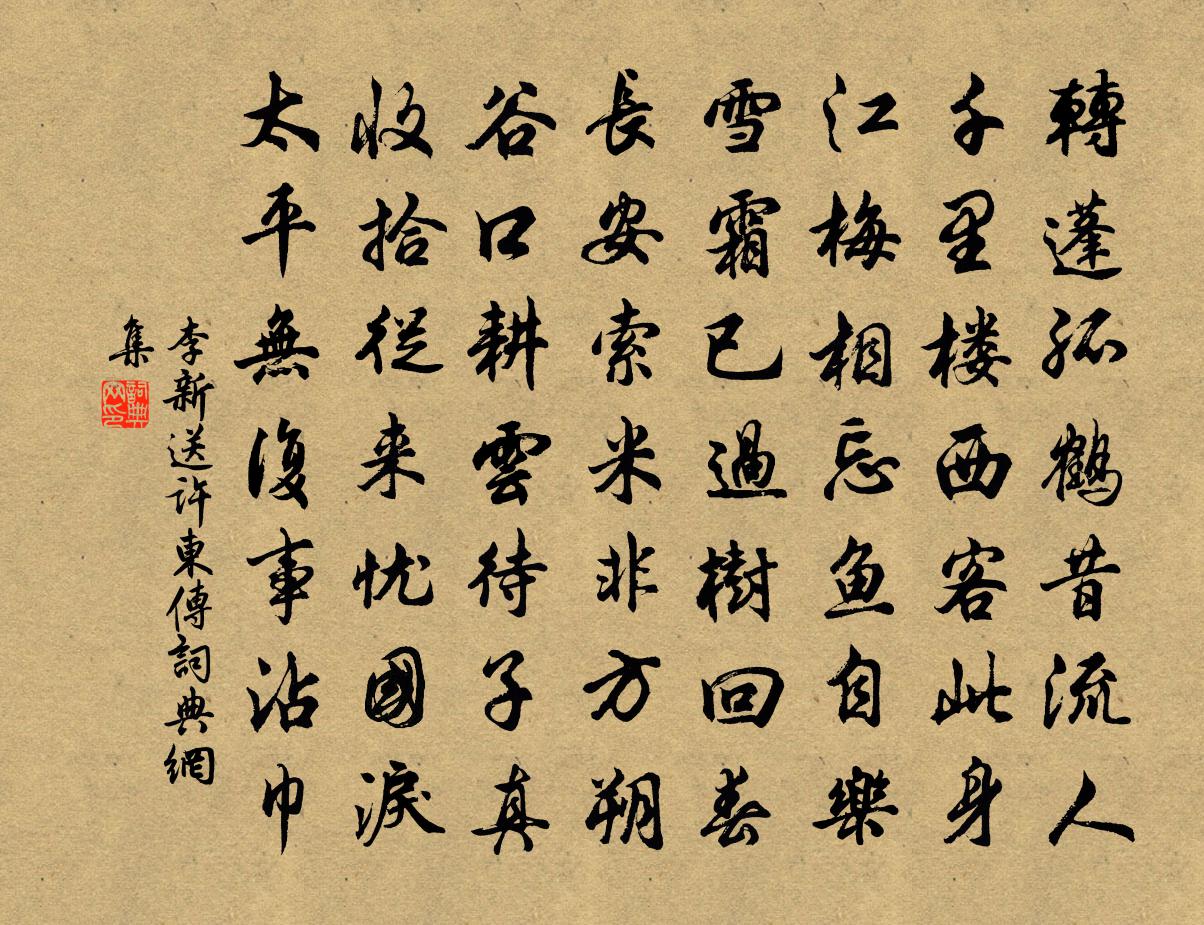 轉蓬孤鶴昔流人
千里楼西客此身
江梅相忘鱼自樂
雪霜已過樹回春
長安索米非方朔
谷口耕雲待子真
收拾從来忧國淚
太平無復事沾巾
李新送许東傳詞典網
集
詞典网印